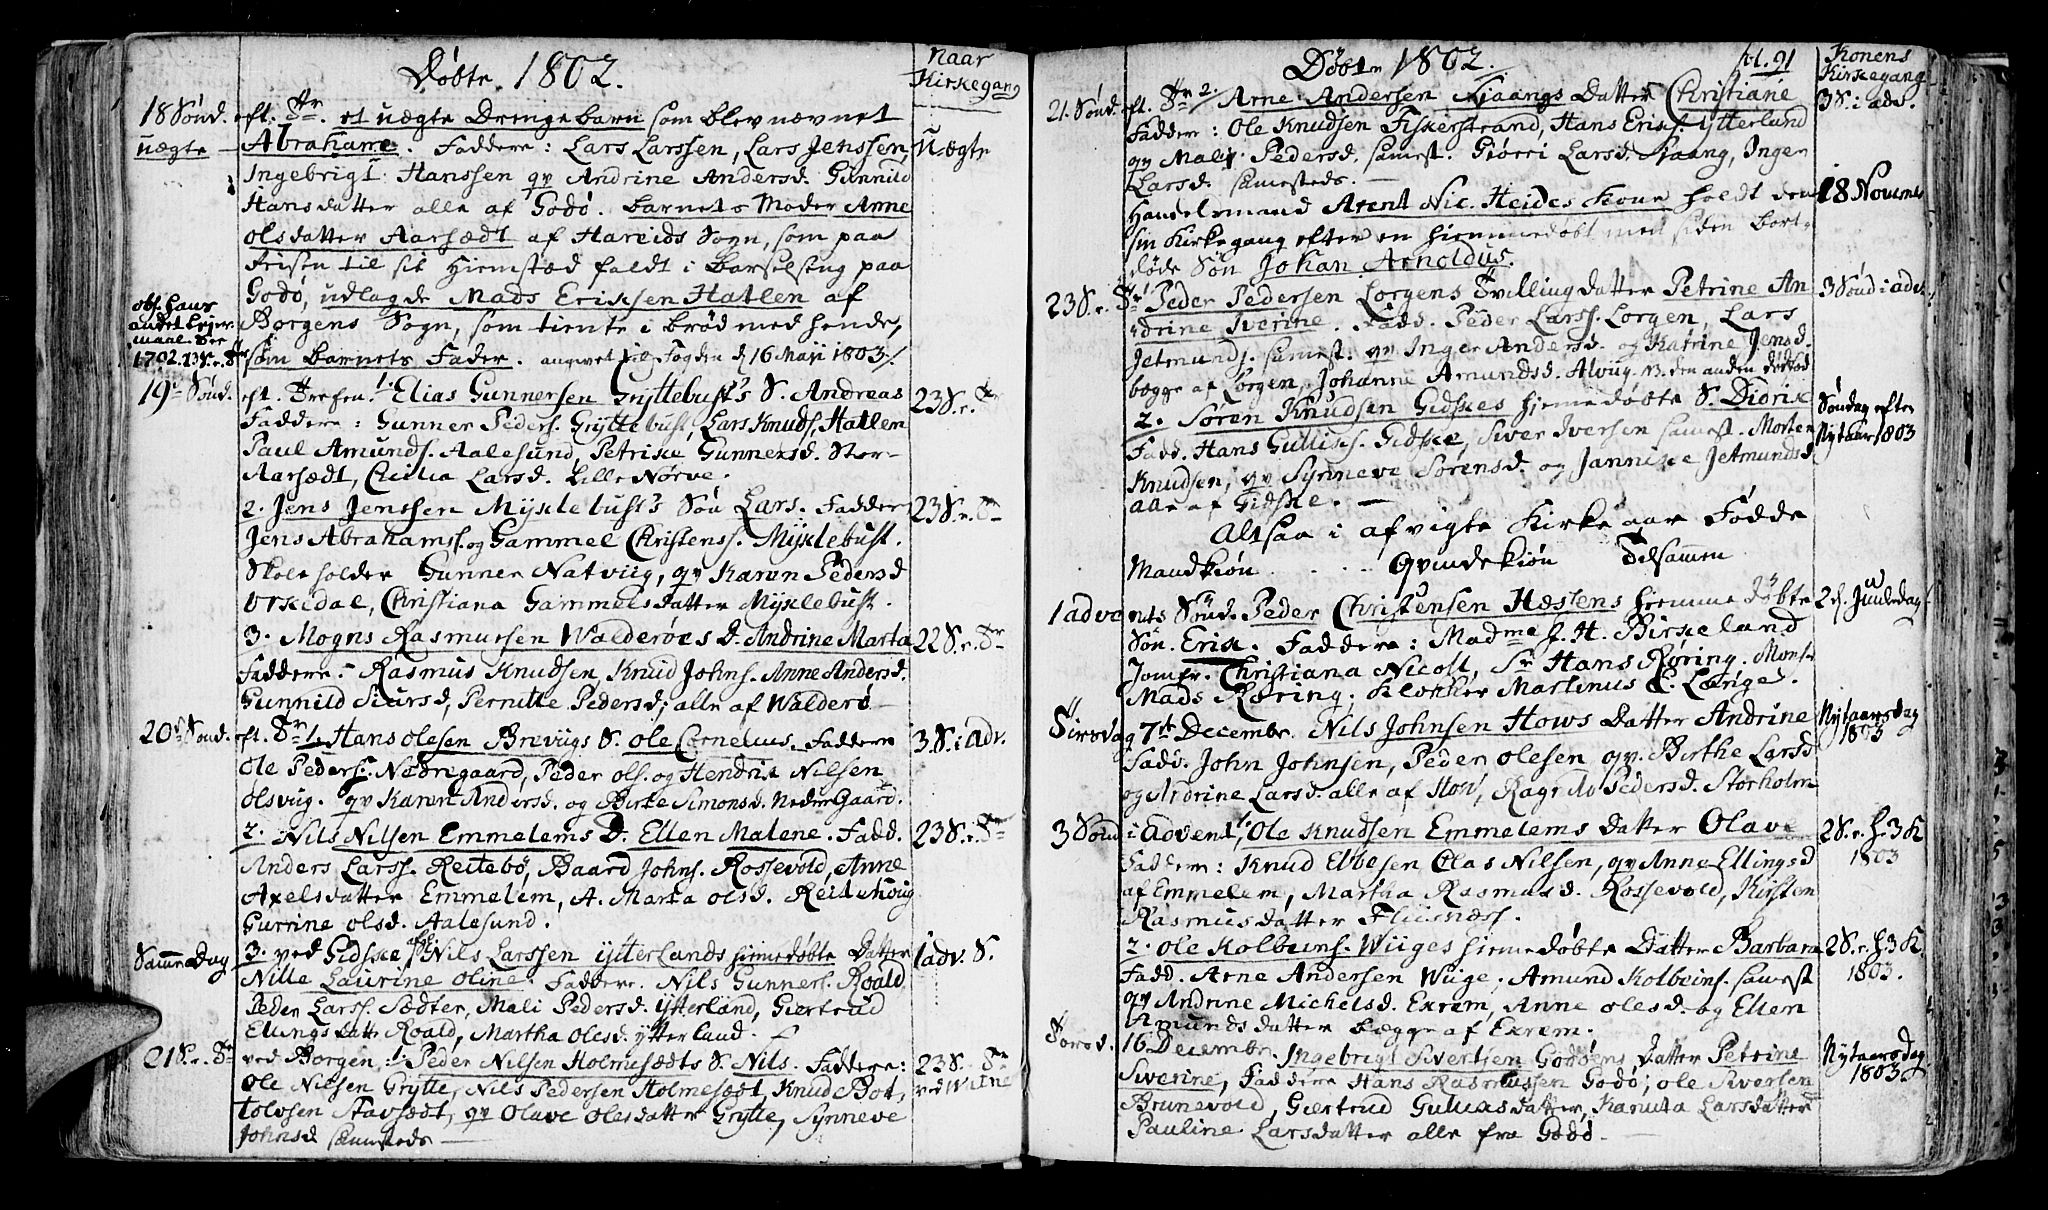 Døbte 1802.
Naar
Kirkegang
18 Sønd. eft. Tr. et uægte Drengebarn som blev nævnet
uægte
Abrahame. Faddere: Lars Larssen, Lars Jenssen,
Uægte
Ingebrigt Hanssen qv Andrine Andersd. Gunnild
Hansdatter alle af Godø. Barnets Moder Anne
Olsdatter Aarsædt af Hareids Sogn, som paa
Reisen til sit Hiemstæd faldt i Barselseng paa
Godø, udlagde Mads Erixsen Hatlen af
Borgens Sogn, som tiente i brød med hende,
som Barnets Fader. angivet til Fogden d 16 Maji 1803./.
obs. hans
andet Leier
maal. See
19de Sønd. eft. Trefen. 1. Elias Gunnersen Gryttebust's S. Andreas
23 S. e. Tr
Faddere: Gunner Peders. Gryttebust, Lars Knuds. Hatlem
Paul Amunds. Aalesund, Petrike Gunnersd. Stor-
Aarsædt, Cicilia Larsd. Lille Nørve.
2. Jens Jenssen Myxlebust's Søn Lars. Faddere
23 S. e. Tr
Jens Abrahams. og Gammel Christens. Myxlebust.
Skoleholder Gunner Natviig, qv Karen Pedersd
Ørskedal, Christiana Gammelsdatter Myxlebust.
3. Mogns Rasmussen Walderøes D. Andrine Marta
22 S. e. Tr
Faddere: Rasmus Knudsen, Knud Johns. Anne Andersd.
Gunnild Siursd, Pernille Pedersd; alle af Walderø
20de Sønd. eft. Tr 1. Hans Olesen Breviigs S. Ole Cornelius. Faddere
3. S. i Adv.
Ole Peders. Nedregaard, Peder Ols. og Hendrik Nilsen
Olsvug. qv Karen Andersd. og Birke Simonsd. Neder Gaard.
2. Nils Nilsen Emmelems D. Ellen Malene. Fadd.
23 S. e. Tr
Anders Larss. Reitebø, Baard Johns. Rossevold, Anne
Axelsdatter Emmelem, A. Marta Olsd. Reitehvig
Gurrine Olsd. Aalesund.
SameDag
3. ved Gidske Nils Larssen Ytterlands hiemedøbte Datter
1 adv. S.
Nille Laurine Oline. Faddere. Nils Gunners. Roald
Peder Larss. Sædter, Mali Pedersd. Ytterland, Giertrud
Ellings datt Roald, Martha Olesd. Ytterland.
21 S. e. Tr ved Borgen: 1. Peder Nilsen Holmesædts S. Nils. Faddere:
23 S. Tr
Ole Nilsen Grytte, Nils Pedersen Holmesædt, Knud Bot,
Tolvsen Stavsædt, qv Olave Olesdatter Grytte, Synneve
Johnsd samesteds
Døbte 1802.
Konens
Kirkegang
21. Sønd. eft. Tr 2. Arne Andersen Sjaangs Datter Christiane
3 S. i adv.
Faddere: Ole Knudsen Fiskerstrand, Hans Eriks. Ytterlund
qv Mali Pedersd. samest. Giørri Larsd. Siaang, Inger
Larsd. samesteds.
Handelsmand Arent Nic. Heides Kone holdt den
18 Novemb
sin Kirkegang efter en hiemmedøbt men siden bort-
døde Søn Johan Arnoldus.
23 S. e. Tr Peder Pedersen Lorgens Tvilling datter Petrine An
3 Sønd i adv.
drine Iverine. Fadd. Peder Larss. Lorgen, Lars
Jetmunds. samest. qv Inger Andersd. og Katrine Jensd.
begge af Lorgen, Johanne Amundsd. Alvug. NB. den anden dødfød
2. Søren Knudsen Gidskes hiemedøbte S. Didrik
Søndag efter
Nytaar 1803
Fadd. Hans Gullics. Gidske, Siver Iversen samest. Morten
Knudsen, qv Synneve Sørensd. og Jannike Jetmundsd
alle af Gidske.
Altsaa i afvigte Kirke aar Fødde
Mandkiøn . . . Qvindekiøn Tilsammen
1 advents Sønd. Peder Christensen Hæssens hiemmedøbte
2d. Juuledag
Søn. Erik. Faddere: Madme J. H. Birkeland
Jomfr. Christiana Nicoll, Sr Hans Røring. Mons.
Mads Røring. Klokker Martinus C. Længe.
Tirsdag 7de Decembr. Nils Johnsen Hows Datter Andrine
Nytaarsdag
1803
Fadd. John Johnsen, Peder Olesen qv. Birthe Larsd
og Andrine Larsd. alle af How, Pedersd. Storholm
3 Sønd i Advent, Ole Knudsen Emmelems Datter Olave
2 S. e. h. 3 K
1803
Faddere: Knud Elbesen Clas Nilsen, qv Anne Ellingsd
af Emmelem, Martha Rasmusd. Rossevold, Kirsten
Rasmusdatter Fliisnæss.
2. Ole Kolbeins. Wiiges hiemedøbte Datter Barbara
2 S. e. h. 3 K.
1803.
Fadd. Arne Andersen Wiige. Amund Kolbeins. samest
qv Andrine Michelsd. Exrem, Anne Olesd. og Ellen
Amundsdatter begge af Exrem.
Torsd. 16 Decembr. Ingebrigt Sivertsen Godøens Datter Petrine
Nytaarsdag
1803.
Siverine, Faddere Hans Rasmussen Godø, Ole Siversen
Brunevold, Giertrud Gulliksdatter, Kanuta Larsdatter
Pauline Larsdatter alle fra Godø.